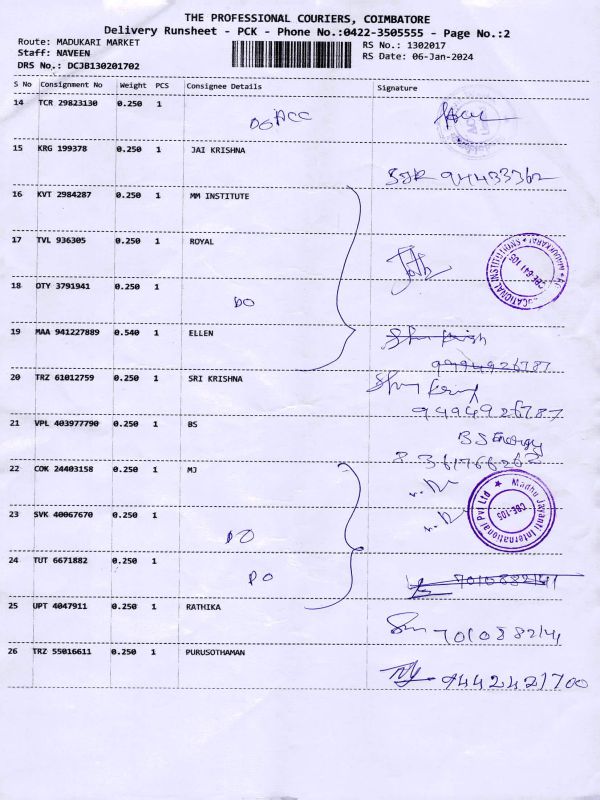 THE PROFESSIONAL COURIERS, COIMBATORE
Delivery Runsheet - PCK - Phone No.:0422-3505555 - Page No.:2
Route: MADUKARI MARKET
Staff: NAVEEN
DRS No.: DCJB130201702
RS No.: 1302017
RS Date: 06-Jan-2024
S No Consignment No Weight PCS Consignee Details Signature
14 TCR 29823130 0.250 1 ACC
15 KRG 199378 0.250 1 JAI KRISHNA
16 KVT 2984287 0.250 1 MM INSTITUTE
17 TVL 936305 0.250 1 ROYAL
18 OTY 3791941 0.250 1 DO
19 MAA 941227889 0.540 1 ELLEN
9994926787
20 TRZ 61012759 0.250 1 SRI KRISHNA
9494926787
21 VPL 403977790 0.250 1 BS
BS Energy
22 COK 24403158 0.250 1 MJ
Madhu Jayanti International Pvt Ltd ★
CBE-105
23 SVK 40067670 0.250 1 DO
24 TUT 6671882 0.250 1 DO
7010882141
25 UPT 4047911 0.250 1 RATHIKA
26 TRZ 55016611 0.250 1 PURUSOTHAMAN
9442421700